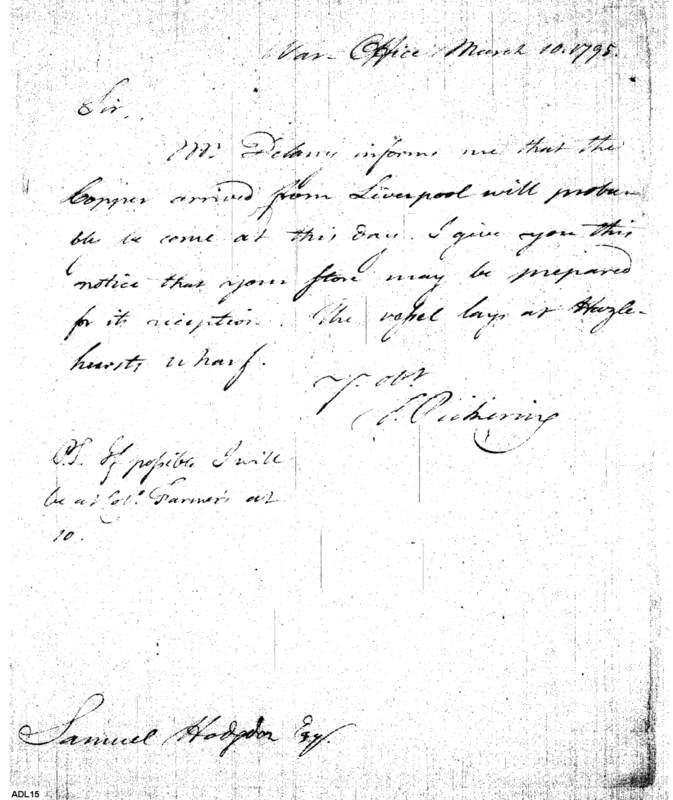 War Office March 10. 1795.
Sir,
Mr. Delany informs me that the
Copper arrived from Liverpool will proba-
bly be come at this day. I give you this
notice that your store may be prepared
for its reception. The vessel lays at Hazle-
hursts wharf.
Yr. obt.
T. Pickering
P.S. If possible I will
be at Col. Farmer's at
10.
Samuel Hodgdon Esq.
ADL15